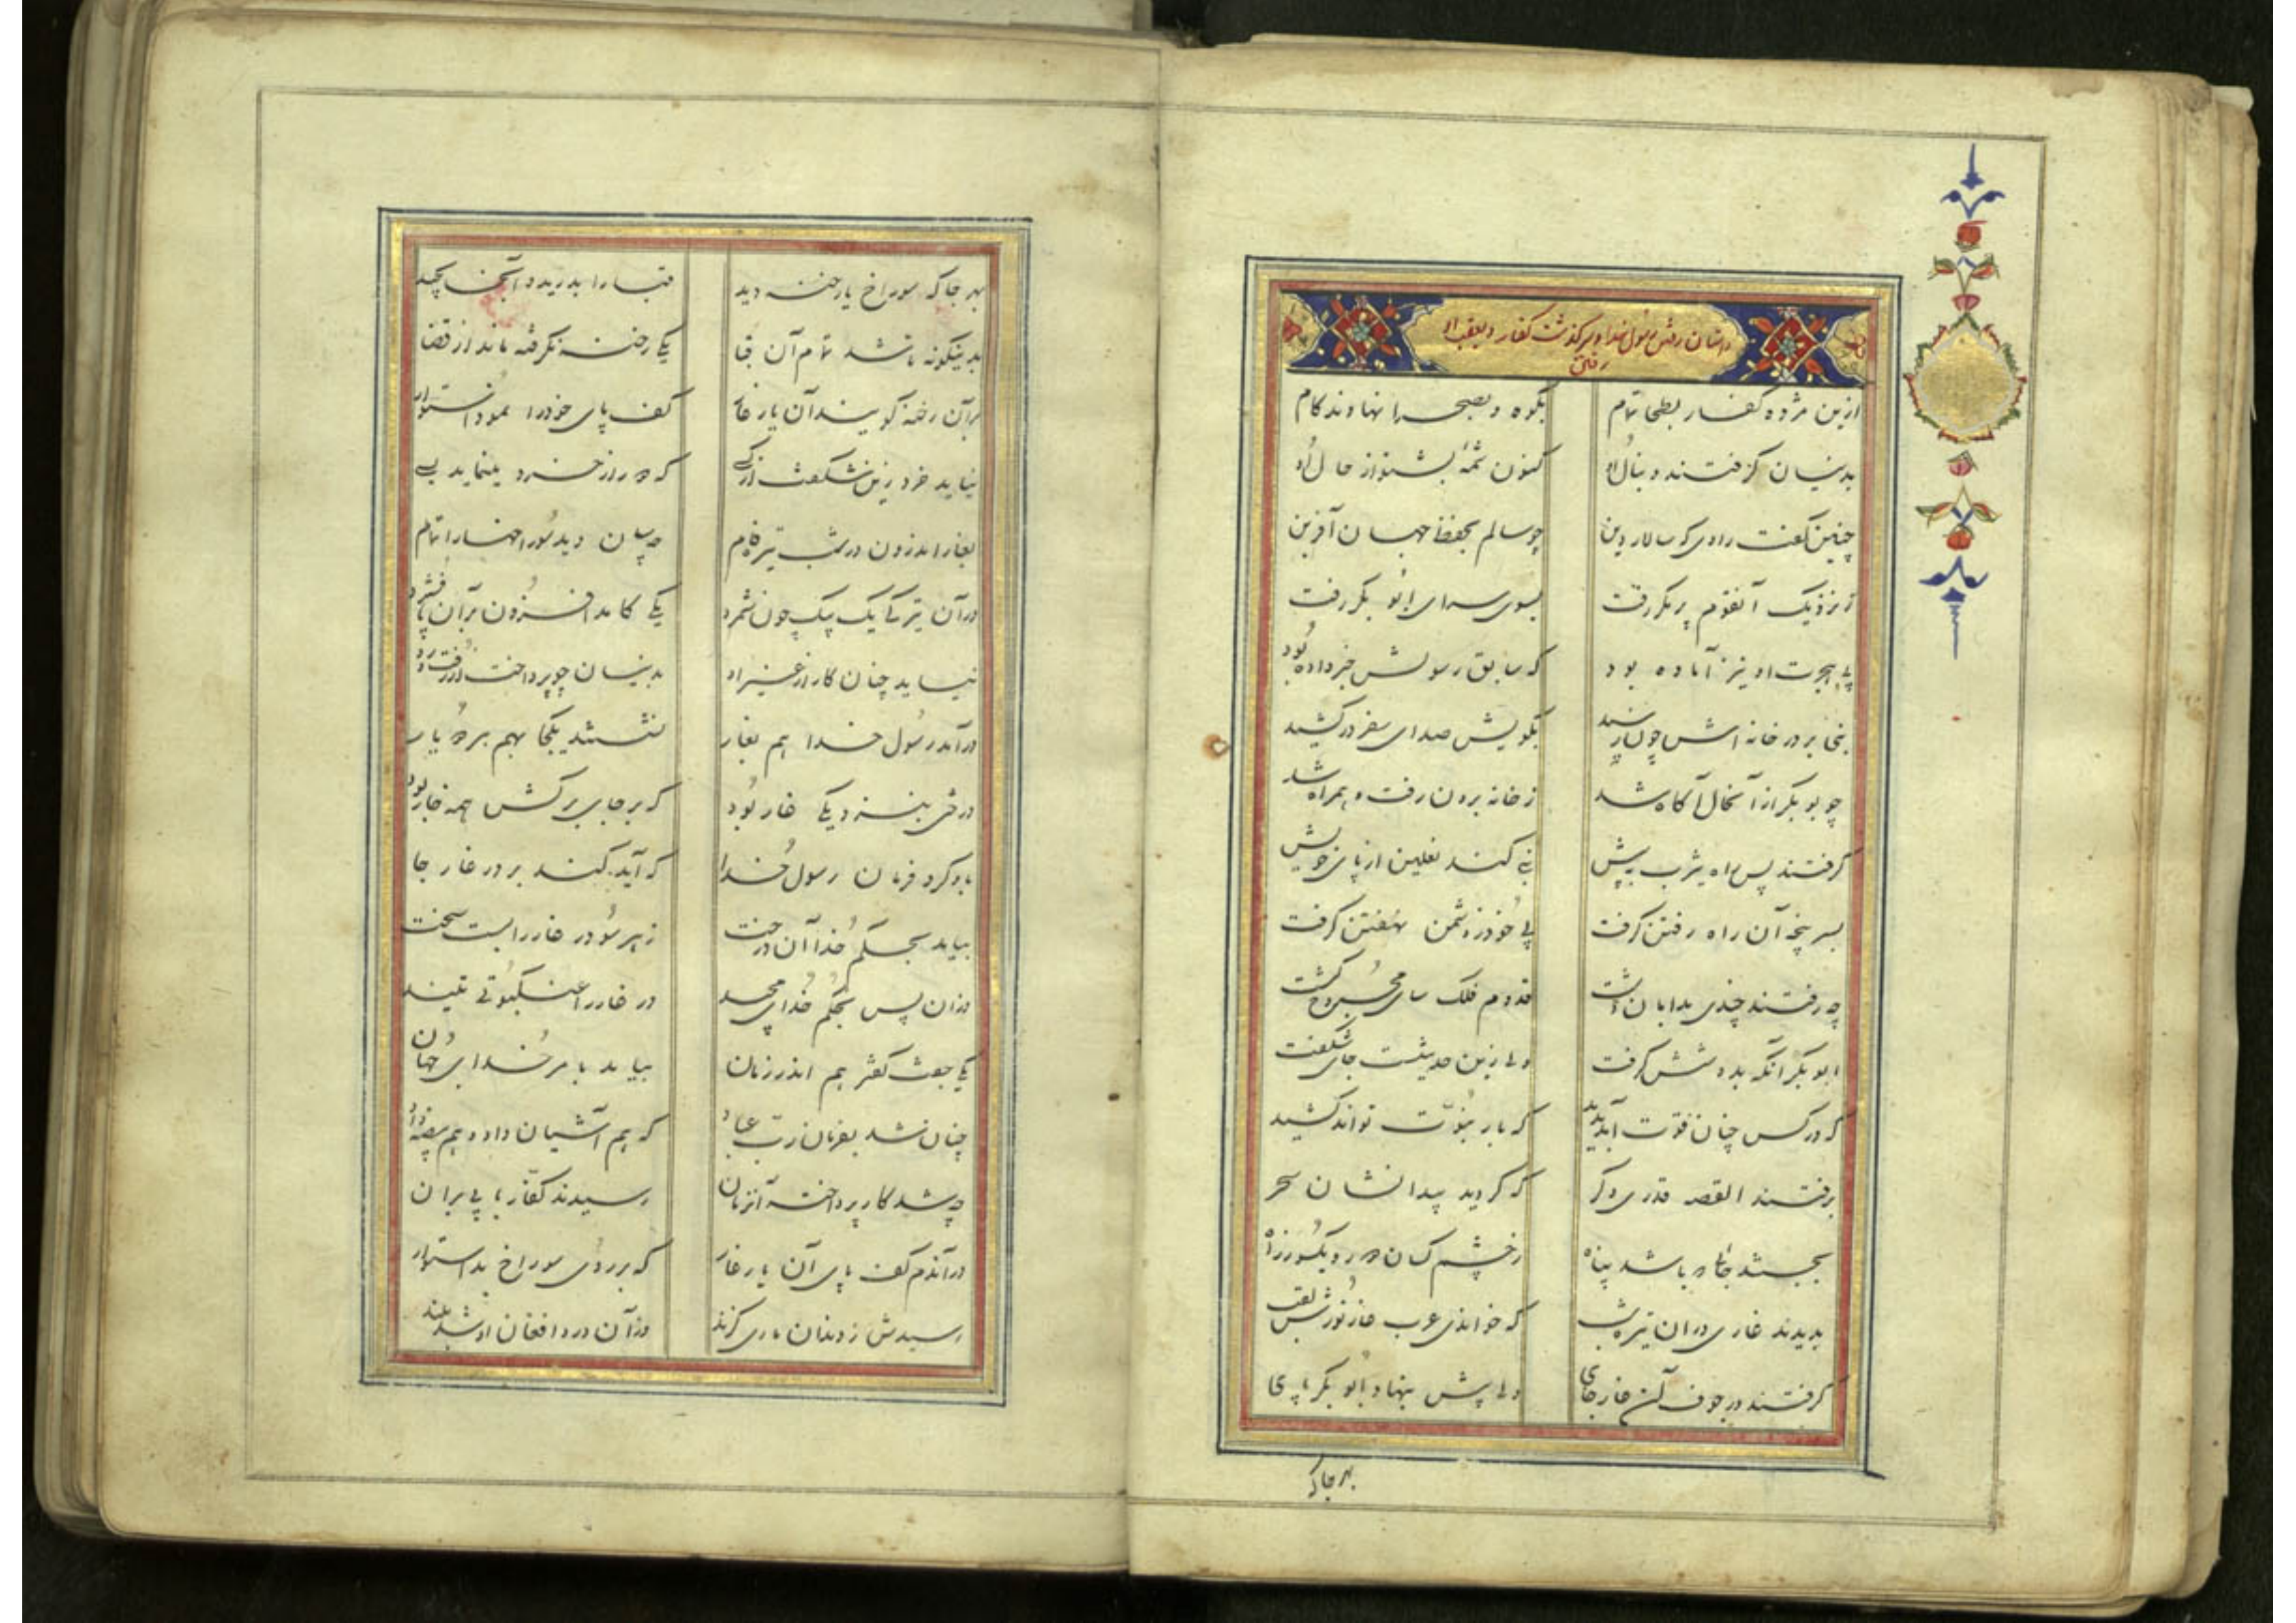 داستان رفتن رسول خدا و سرگذشت کفار و بعقب او
رفتن
ازین مژده کفار بطحا تمام بکوه و بصحرا نهادند کام
بدینسان گرفتند دنبال او کنون شمهٔ بشنو از حال او
چنین گفت راوی که سالار دین چو سالم بحفظ جهان آفرین
ز نزدیک آنقوم پر مکر رفت بسوی سرای ابو بکر رفت
پی هجرت او نیز آماده بود که سابق رسولش خبر داده بود
نبی بر در خانه اش چون رسید بگوشش صدای سفر در کشید
چو بوبکر از آنحال آگاه شد ز خانه برون رفت و همراه شد
گرفتند پس راه یثرب به پیش نبی کند نعلین از پای خویش
بسر پنجه آن راه رفتن گرفت پی خود ز دشمن نهفتن گرفت
چو رفتند چندی بدامان دشت قدوم فلک سای مجروح گشت
ابو بکر آنگه بدوشش گرفت ولی زین حدیثست جای شگفت
که در کس چنان قوت آید پدید که بار نبوت تواند کشید
برفتند القصه قدری دگر که گردید پیدا نشان سحر
بجستند جائی که باشد پناه ز چشم کسان دور و یکسو ز راه
بدیدند غاری در ان تیره شب که خواندی عرب غار ثورش لقب
گرفتند در جوف آن غار جای ولی پیش بنهاد ابو بکر پای
بهر جا که
بهر جا که سوراخ یا رخنه دید قبا را بدرید و آنجا بچید
بدینگونه تا شد تمام آن قبا یکی رخنه نگرفته ماند از قضا
بر آن رخنه گویند آن یار غار کف پای خود را نمود استوار
نیاید جز او این شگفت از کسی که دور از خرد مینماید بسی
بغار اندرون در شب تیره فام چسان دید سوراخها را تمام
در آن تیرگی یک بیک چون شمرد یکی کامد افزون بر آن پا فشرد
نیاید چنان کار از غیر او بدینسان چو پرداخت از رفت و رو
در آمد رسول خدا هم بغار نشستند یکجا بهم هر دو یار
درختی بنزدیکی غار بود که بر جای برگش همه خار بود
باو کرد فرمان رسول خدا که آید کند بر در غار جا
بیامد بحکم خدا آن درخت ز هر سو در غار را بست سخت
وزان پس بحکم خدای مجید در غار را عنکبوتی تنید
یکی جفت کفتر هم اندر زمان بیامد بامر خدای جهان
چنان شد بفرمان رب عباد که هم آشیان داد و هم بیضه داد
چو شد کار پرداخته آنزمان رسیدند کفار با پی بران
در آندم کف پای آن یار غار که بر روی سوراخ بد استوار
رسیدش ز دندان ماری گزند وز آن درد افغان او شد بلند